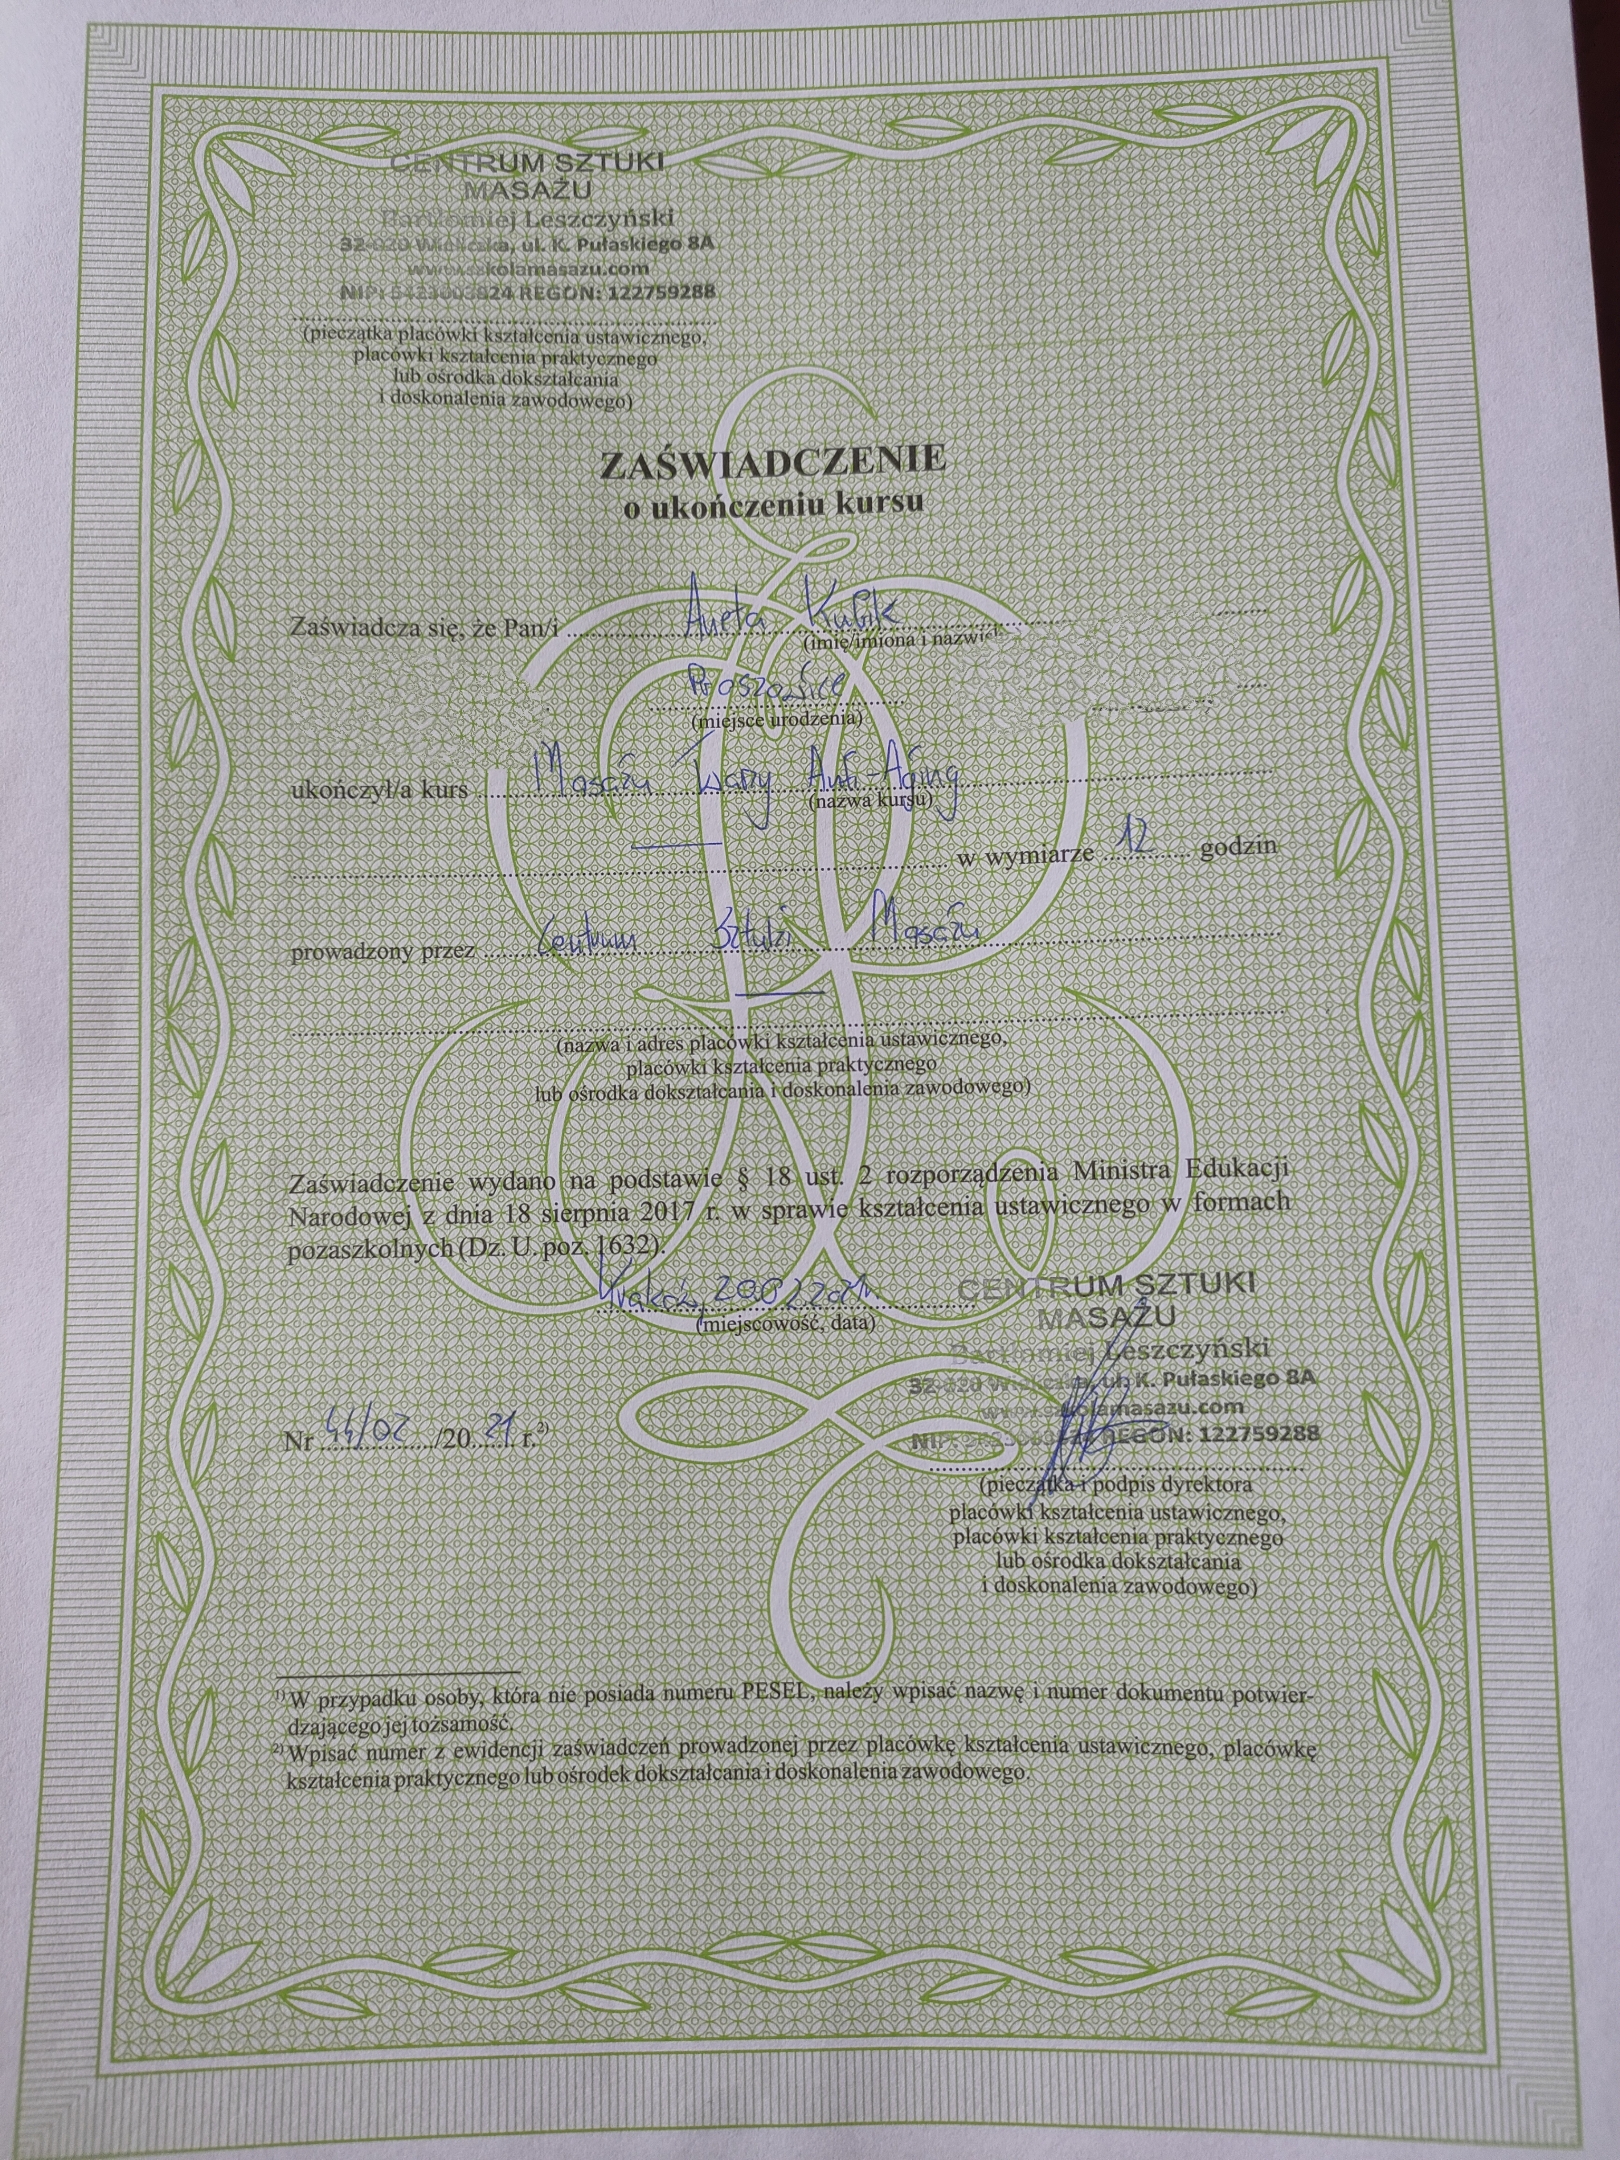 CENTRUM SZTUKI
MASAŻU
Bartłomiej Leszczyński
32-020 Wieliczka, ul. K. Pułaskiego 8A
www.szkolamasazu.com
REGON: 122759288
(pieczątka placówki kształcenia ustawicznego,
placówki kształcenia praktycznego
lub ośrodka dokształcania
i doskonalenia zawodowego)
ZAŚWIADCZENIE
o ukończeniu kursu
Zaświadcza się, że Pan/i Aneta Kubik
(imię/imiona i
(miejsce urodzenia)
ukończył/a kurs Masażu Twarzy Anti-Aging
(nazwa kursu)
w wymiarze 12 godzin
prowadzony przez Centrum Sztuki Masażu
(nazwa i adres placówki kształcenia ustawicznego,
placówki kształcenia praktycznego
lub ośrodka dokształcania i doskonalenia zawodowego)
Zaświadczenie wydano na podstawie § 18 ust. 2 rozporządzenia Ministra Edukacji
Narodowej z dnia 18 sierpnia 2017 r. w sprawie kształcenia ustawicznego w formach
pozaszkolnych (Dz. U. poz. 1632).
Kraków,
(miejscowość, data)
CENTRUM SZTUKI
MASAŻU
Bartłomiej Leszczyński
32-020 Wieliczka, ul. K. Pułaskiego 8A
www.szkolamasazu.com
REGON: 122759288
Nr 44/02 /20 21 r.²⁾
(pieczątka i podpis dyrektora
placówki kształcenia ustawicznego,
placówki kształcenia praktycznego
lub ośrodka dokształcania
i doskonalenia zawodowego)
¹⁾ W przypadku osoby, która nie posiada numeru PESEL, należy wpisać nazwę i numer dokumentu potwier-
dzającego jej tożsamość.
²⁾ Wpisać numer z ewidencji zaświadczeń prowadzonej przez placówkę kształcenia ustawicznego, placówkę
kształcenia praktycznego lub ośrodek dokształcania i doskonalenia zawodowego.